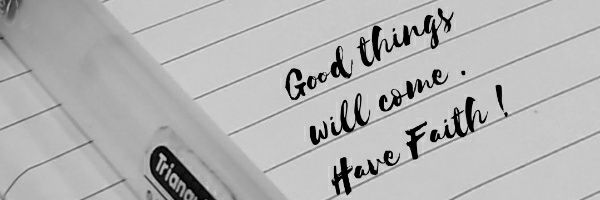 Good things
will come .
Have Faith !